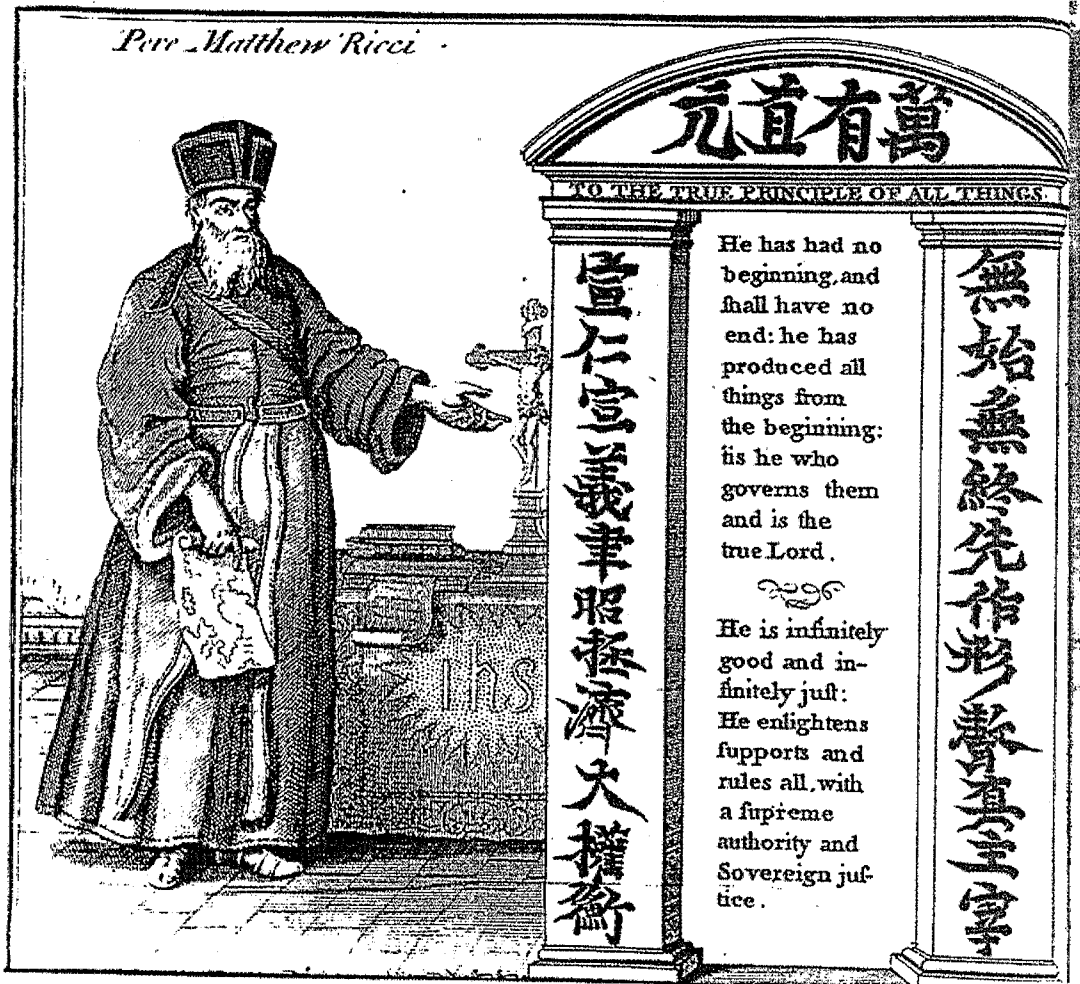 Pere Matthew Ricci
萬有直元
TO THE TRUE PRINCIPLE OF ALL THINGS.
無始無終先作形聲真主宰
宣仁宣義聿昭拯濟大權衡
He has had no
beginning, and
ſhall have no
end: he has
produced all
things from
the beginning:
tis he who
governs them
and is the
true Lord.
He is infinitely
good and in-
finitely juſt:
He enlightens
ſupports and
rules all, with
a ſupreme
authority and
Sovereign juſ-
tice.
ihs